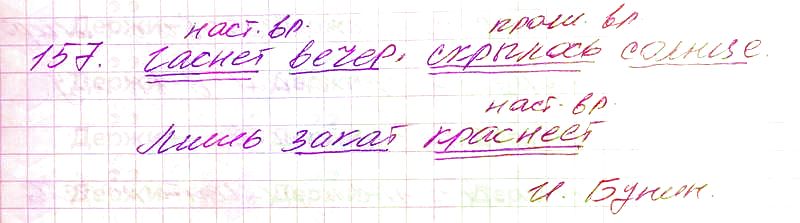 наст. вр. прош. вр
157. Гаснет вечер, скрылось солнце.
наст. вр.
Лишь закат краснеет
И. Бунин.